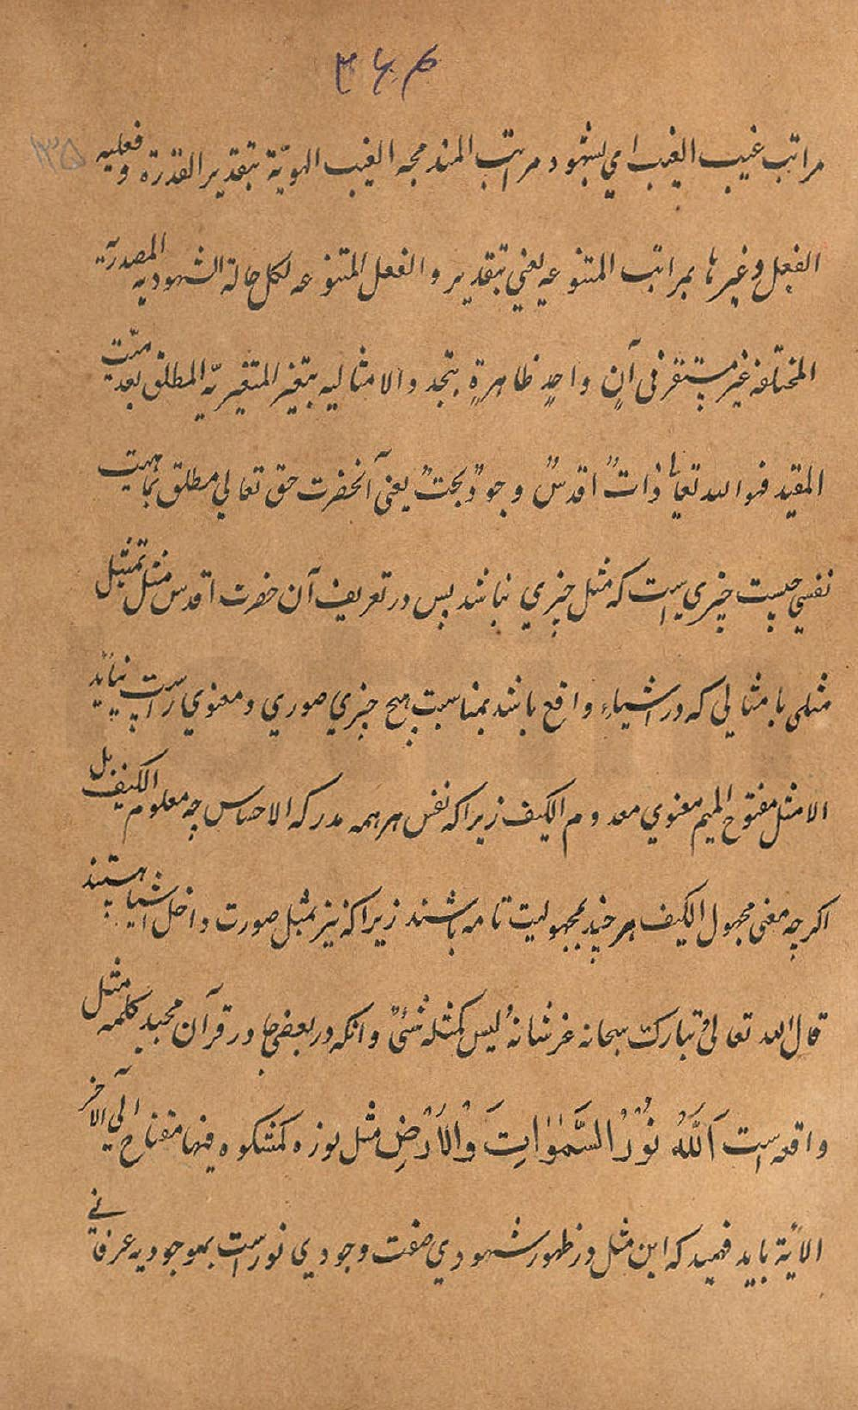 ۳۶۴
۱۳۵
مراتب غیب الغیب اي بشهود مراتب المندمجه الغیب الهویّة بتقدیر القدرة و فعلیه
الفعل و غیرها بمراتب المتنوعیه یعني بتقدیر و الفعل المتنوعه لکل حالة الشهودیه المصدریّه
المختلفه غیر مستقر في آنٍ واحدٍ ظاهرةٍ بتجدد الامثالیه بتغیر المتغیریّه المطلق بعدمیّت
المقید فهو الله تعالیٰ ذاتٌ اقدسٌ وجودٌ بحتٌ یعني آنحضرت حق تعالي مطلق بماهیت
نفسي چیست چیزي است که مثل چیزي نباشد پس در تعریف آن حضرت اقدس مثل تمثیل
مثلي یا مثالي که در اشیاء واقع باشد بمناسبت هیچ چیزي صوري و معنوي راست نیاید
الا مثل مفتوح المیم معنوي معدوم الکیف زیرا که نفس هر همه مدرکه الاحساس چه معلوم الکیف بل
اکرچه معنی مجهول الکیف هر چند بمجهولیت تامه باشند زیرا که نیز بمثل صورت داخل اشیا هستند
قال الله تعالیٰ تبارک سبحانه عز شانهٗ لیس کمثله شئیٌ و انکه در بعضي جا در قرآن مجید کلمه مثل
واقعه است اَللهُ نُورُ السَّمٰوٰاتِ وَالْاَرْضِ مثل نوره کمشکوه فیها مفتاح الي الآخر
الآیة باید فهمید که این مثل در ظهور شهودي صفت وجودي نور است بموجودیه عرفاني